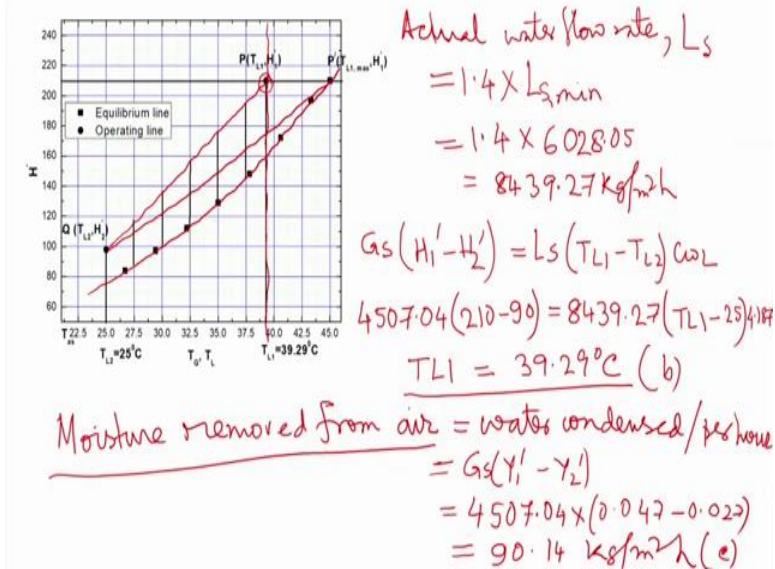 240
220
200
180
160
140
120
100
80
60
H'
P(T_L1,H'_1)
P'(T_L1,max,H'_1)
■ Equilibrium line
● Operating line
Q (T_L2,H'_2)
22.5 25.0 27.5 30.0 32.5 35.0 37.5 40.0 42.5 45.0
T_as
T_L2=25°C
T_G, T_L
T_L1=39.29°C
Actual water flow rate, Ls
= 1.4 × Ls,min
= 1.4 × 6028.05
= 8439.27 kg/m²h
Gs(H₁'-H₂') = Ls(TL1-TL2) CWL
4507.04(210-90) = 8439.27(TL1-25)4.187
TL1 = 39.29°C (b)
Moisture removed from air = water condensed/per hour
= Gs(Y₁'-Y₂')
= 4507.04×(0.047-0.027)
= 90.14 kg/m²h (c)